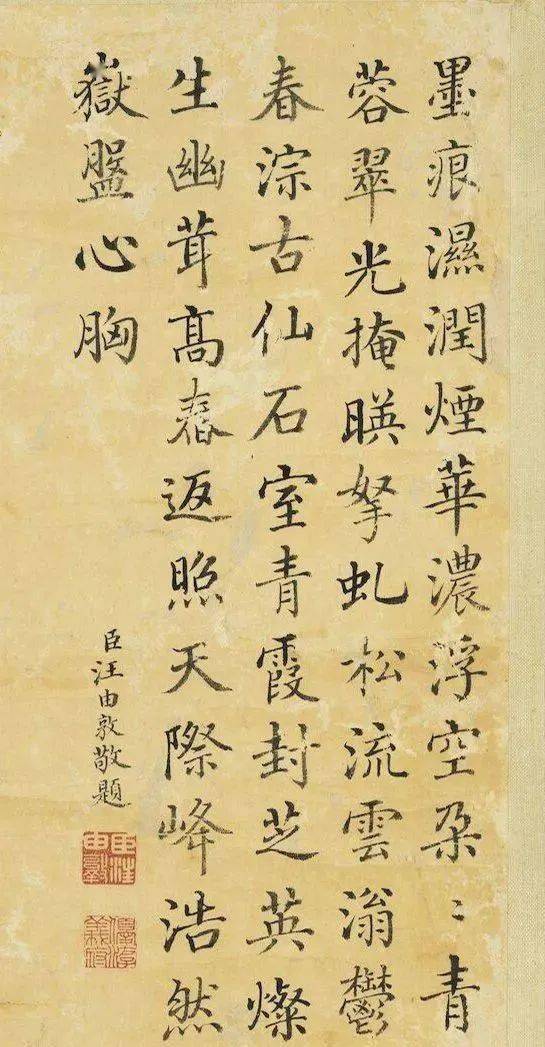 墨痕濕潤煙華濃浮空朵〻青
蓉翠光掩暎拏虬松流雲滃鬱
春淙古仙石室青霞封芝英燦
生幽茸髙舂返照天際峰浩然
嶽盤心胸
臣汪由敦敬題
臣汪由敦